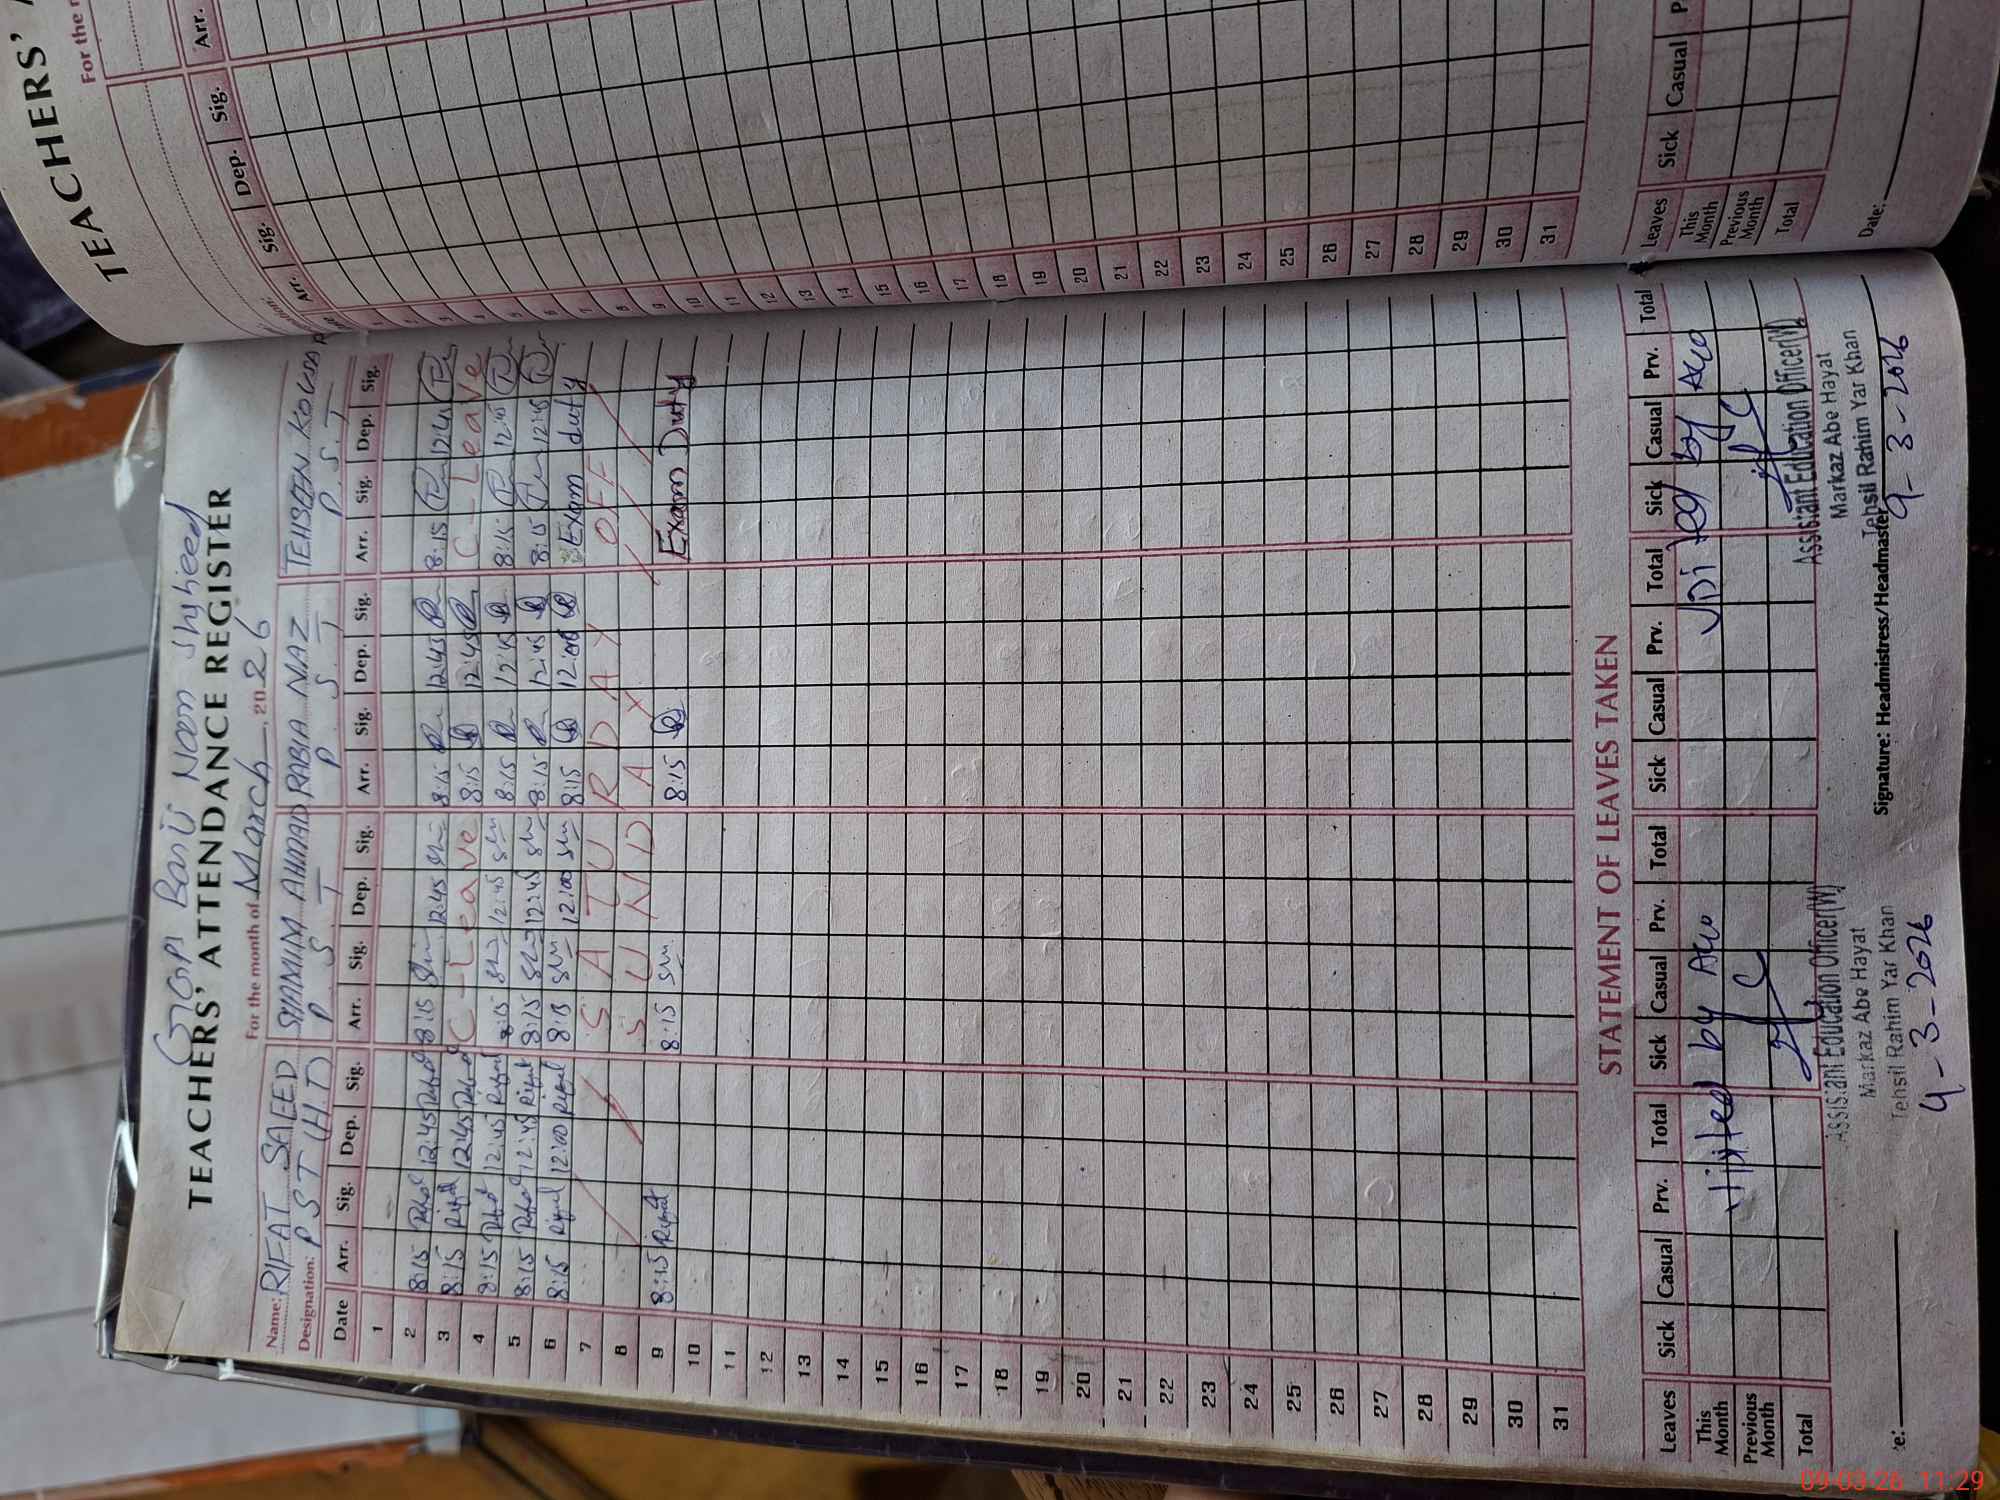 GGPS Basti Noor Shaheed
TEACHERS' ATTENDANCE REGISTER
For the month of March, 2026
Name: RIFAT SAEED SHAMIM AHMAD RABIA NIAZ TEHSEEN KOUSAR
Designation: P S T (H.T) P. S. T P. S. T P. S. T
Date Arr. Sig. Dep. Sig. Arr. Sig. Dep. Sig. Arr. Sig. Dep. Sig. Arr. Sig. Dep. Sig.
1
2 8:15 Rifat 12:45 Rifat 8:15 12:45 8:15 12:45 8:15 12:45
3 8:15 Rifat 12:45 Rifat C-Leave 8:15 12:45 C-Leave
4 8:15 Rifat 12:45 Rifat 8:15 12:45 8:15 12:45 8:15 12:45
5 8:15 Rifat 12:45 Rifat 8:15 12:45 8:15 12:45 8:15 12:45
6 8:15 Rifat 12:00 Rifat 8:15 12:00 8:15 12:00 Exam duty
7 S A T U R D A Y OFF
8 S U N D A Y
9 8:15 Rifat 8:15 8:15 Exam Duty
10
11
12
13
14
15
16
17
18
19
20
21
22
23
24
25
26
27
28
29
30
31
STATEMENT OF LEAVES TAKEN
Leaves Sick Casual Prv. Total Sick Casual Prv. Total Sick Casual Prv. Total Sick Casual Prv. Total
This Month Visited by AEO Visited by AEO
Previous Month
Total
Assistant Education Officer(W) Assistant Education Officer(W)
Markaz Abe Hayat Markaz Abe Hayat
Tehsil Rahim Yar Khan Tehsil Rahim Yar Khan
Signature: Headmistress/Headmaster
4-3-2026 9-3-2026
TEACHERS'
For the
Arr. Sig. Dep. Sig. Arr.
1
2
3
4
5
6
7
8
9
10
11
12
13
14
15
16
17
18
19
20
21
22
23
24
25
26
27
28
29
30
31
Leaves Sick Casual
This Month
Previous Month
Total
Date:
TEACHERS'
09-03-26 11:29